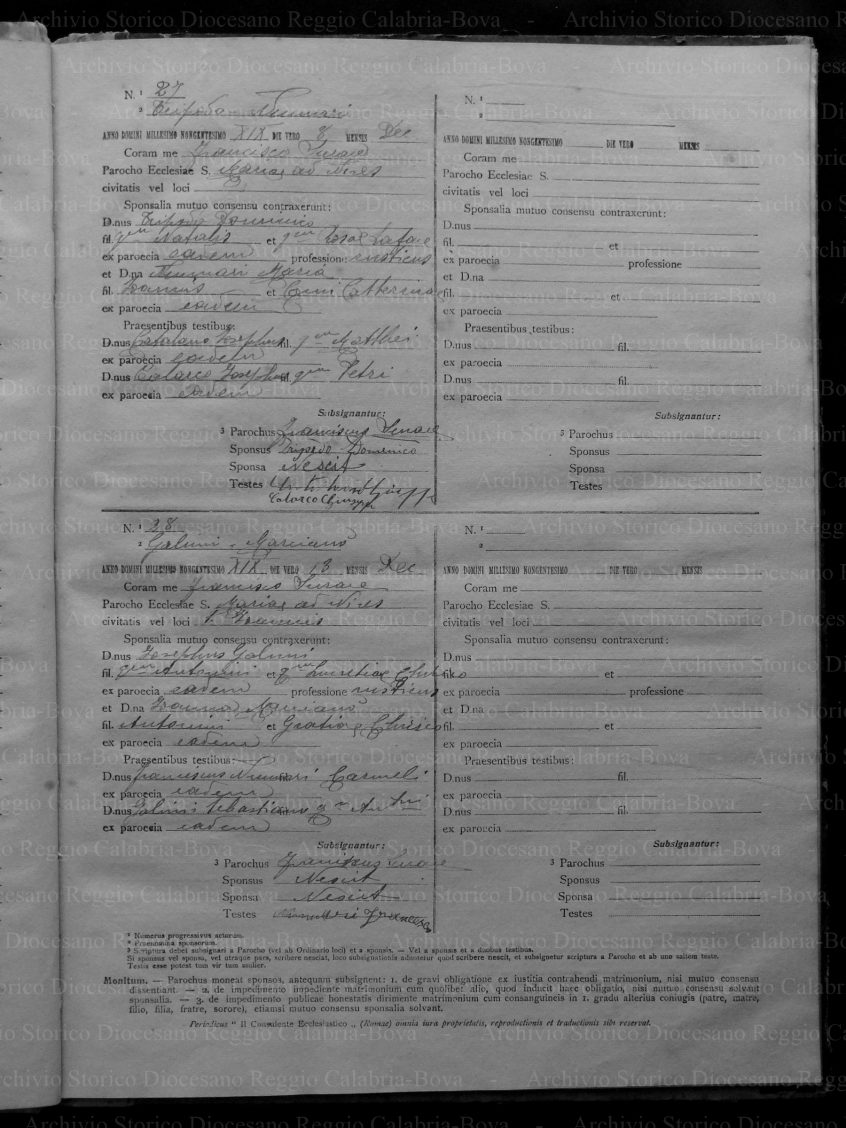 N. ¹ 27
² Tripodo Nunnari
ANNO DOMINI MILLESIMO NONGENTESIMO XIX DIE VERO 8 MENSIS Dec
Coram me Francisco
Parocho Ecclesiae S. Mariae ad Nives
civitatis vel loci
Sponsalia mutuo consensu contraxerunt:
D.nus Tripodo Domenico
fil. qm Natalis et qm
ex paroecia eadem professione rusticus
et D.na Nunnari Maria
fil. et Catterinae
ex paroecia eadem
Praesentibus testibus:
D.nus Catalano Josephus fil. qm Matthei
ex paroecia eadem
D.nus Calarco Josephus fil. qm Petri
ex paroecia eadem
Subsignantur:
³ Parochus Franciscus
Sponsus Tripodo Domenico
Sponsa Nescit
Testes
Calarco
N. ¹ 28
² Galimi Marcianò
ANNO DOMINI MILLESIMO NONGENTESIMO XIX DIE VERO 13 MENSIS Dec
Coram me Francisco
Parocho Ecclesiae S. Mariae ad Nives
civitatis vel loci
Sponsalia mutuo consensu contraxerunt:
D.nus Josephus Galimi
fil. qm Antonini et qm Lucretiae
ex paroecia eadem professione rusticus
et D.na Joanna Marcianò
fil. Antonini et Gratiae Chirico
ex paroecia eadem
Praesentibus testibus:
D.nus Franciscus Nunnari fil. Carmeli
ex paroecia eadem
D.nus Galimi Sebastiano qm
ex paroecia eadem
Subsignantur:
³ Parochus Franciscus
Sponsus Nescit
Sponsa Nescit
Testes Nunnari Francesco
N. ¹
²
ANNO DOMINI MILLESIMO NONGENTESIMO DIE VERO MENSIS
Coram me
Parocho Ecclesiae S.
civitatis vel loci
Sponsalia mutuo consensu contraxerunt:
D.nus
fil. et
ex paroecia professione
et D.na
fil. et
ex paroecia
Praesentibus testibus:
D.nus fil.
ex paroecia
D.nus fil.
ex paroecia
Subsignantur:
³ Parochus
Sponsus
Sponsa
Testes
N. ¹
²
ANNO DOMINI MILLESIMO NONGENTESIMO DIE VERO MENSIS
Coram me
Parocho Ecclesiae S.
civitatis vel loci
Sponsalia mutuo consensu contraxerunt:
D.nus
fil. et
ex paroecia professione
et D.na
fil. et
ex paroecia
Praesentibus testibus:
D.nus fil.
ex paroecia
D.nus fil.
ex paroecia
Subsignantur:
³ Parochus
Sponsus
Sponsa
Testes
¹ Numerus progressivus actorum.
² Praenomina sponsorum.
³ Scriptura debet subsignari a Parocho (vel ab Ordinario loci) et a sponsis. — Vel a sponsis et a duobus testibus.
Si sponsus vel sponsa, vel utraque pars, scribere nesciat, loco subsignationis adnotetur quod scribere nescit, et subsignetur scriptura a Parocho et ab uno saltem teste.
Testis esse potest tum vir tum mulier.
Monitum. — Parochus moneat sponsos, antequam subsignent: 1. de gravi obligatione ex iustitia contrahendi matrimonium, nisi mutuo consensu
dissentiant. — 2. de impedimento impediente matrimonium cum quolibet alio, quod inducit haec obligatio, nisi mutuo consensu solvant
sponsalia. — 3. de impedimento publicae honestatis dirimente matrimonium cum consanguineis in 1. gradu alterius coniugis (patre, matre,
filio, filia, fratre, sorore), etiamsi mutuo consensu sponsalia solvant.
Periodicus " Il Consulente Ecclesiastico „ (Romae) omnia iura proprietatis, reproductionis et traductionis sibi reservat.
Archivio Storico Diocesano Reggio Calabria-Bova